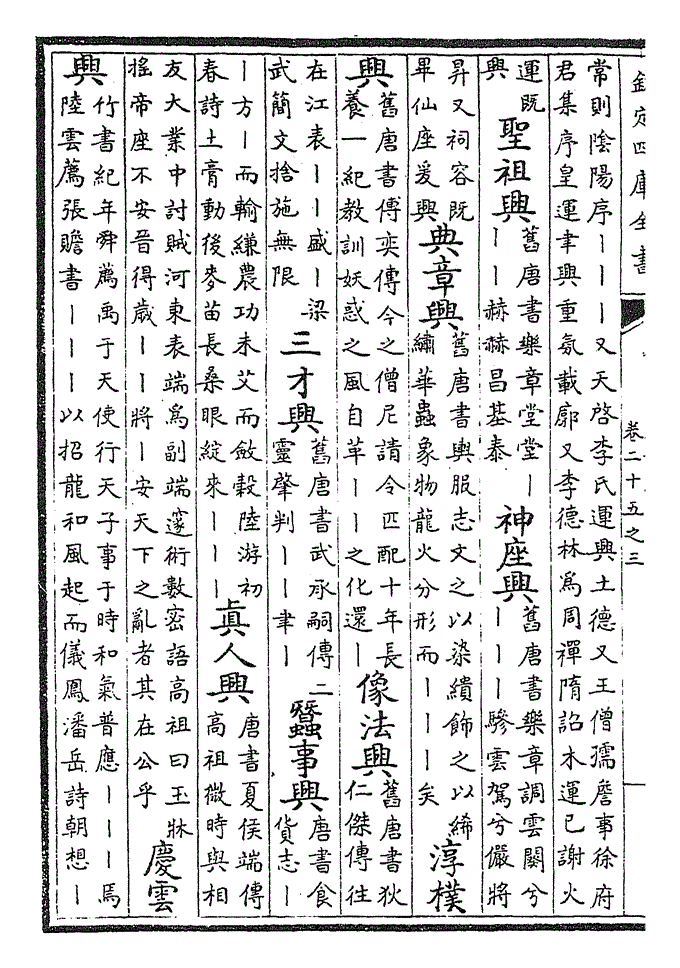 欽定四庫全書
卷二十五之三
常則陰陽序｜｜｜又天啓李氏運興土德又王僧孺詹事徐府
君集序皇運聿興重氛載廓又李德林為周禪隋詔木運已謝火
運既
興
聖祖興
舊唐書樂章堂堂｜
｜｜赫赫昌基泰
神座興
舊唐書樂章調雲闋兮
｜｜｜驂雲駕兮儼將
昇又祠容既
畢仙座爰興
典章興
舊唐書輿服志文之以染繢飾之以絺
繡華蟲象物龍火分形而｜｜｜矣
淳樸
興
舊唐書傅奕傳今之僧尼請令匹配十年長
養一紀教訓妖惑之風自革｜｜之化還｜
像法興
舊唐書狄
仁傑傳往
在江表｜｜盛｜梁
武簡文捨施無限
三才興
舊唐書武承嗣傳二
靈肇判｜｜聿｜
蠶事興
唐書食
貨志｜
｜方｜而輸縑農功未艾而斂穀陸游初
春詩土膏動後麥苗長桑眼綻來｜｜｜
眞人興
唐書夏侯端傳
高祖微時與相
友大業中討賊河東表端爲副端邃術數密語高祖曰玉牀
搖帝座不安晉得歲｜｜將｜安天下之亂者其在公乎
慶雲
興
竹書紀年舜薦禹于天使行天子事于時和氣普應｜｜｜焉
陸雲薦張贍書｜｜｜以招龍和風起而儀鳳潘岳詩朝想｜